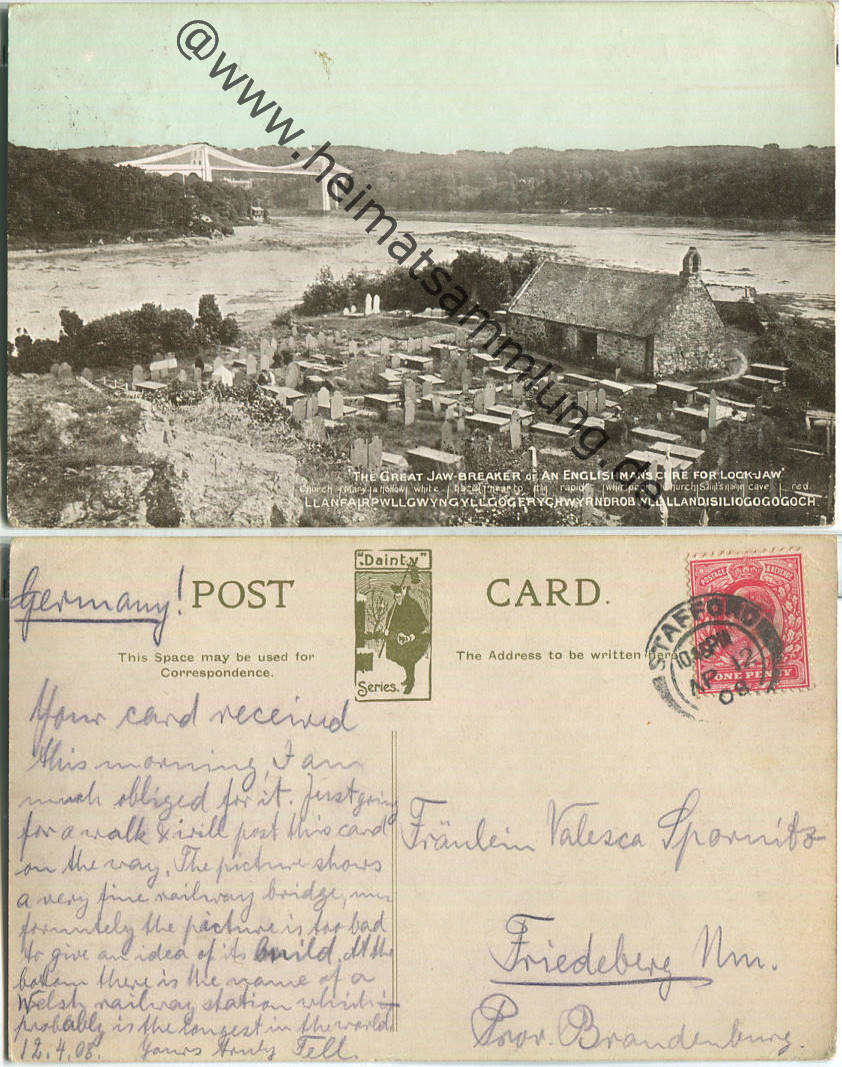 @www.heimatsammlung.de
'THE GREAT JAW-BREAKER OR AN ENGLISHMAN'S CURE FOR LOCK-JAW'
Church (Mary) a hollow white hazel near to rapid church Saint's name cave red
Germany!
POST CARD.
"Dainty"
Series.
This Space may be used for
Correspondence.
The Address to be written here
STAFFORD
10.45PM
AP 12
08
POSTAGE & REVENUE
ONE PENNY
Your card received
this morning, I am
much obliged for it. Just going
for a walk & will post this card
on the way. The picture shows
a very fine railway bridge, un-
fortunately the picture is too bad
to give an idea of its build. At the
bottom there is the name of a
Welsh railway station which
probably is the longest in the world
12.4.08. Yours truly Fell.
Fräulein Valesca Spornitz
Friedeberg Nm.
Prov. Brandenburg.